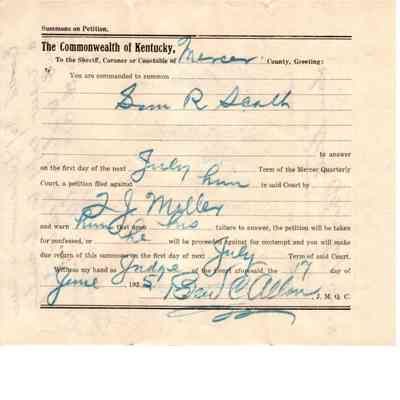 Summons on Petition.
The Commonwealth of Kentucky,
To the Sheriff, Coroner or Constable of Mercer County, Greeting:
You are commanded to summon
R
to answer
on the first day of the next July Term of the Mercer Quarterly
Court, a petition filed against him in said Court by
J Miller
and warn him that upon his failure to answer, the petition will be taken
for confessed, or he will be proceeded against for contempt and you will make
due return of this summons on the first day of next July Term of said Court.
Witness my hand as Judge of the Court aforesaid, the 17 day of
June 1925 C Allen J. M. Q. C.